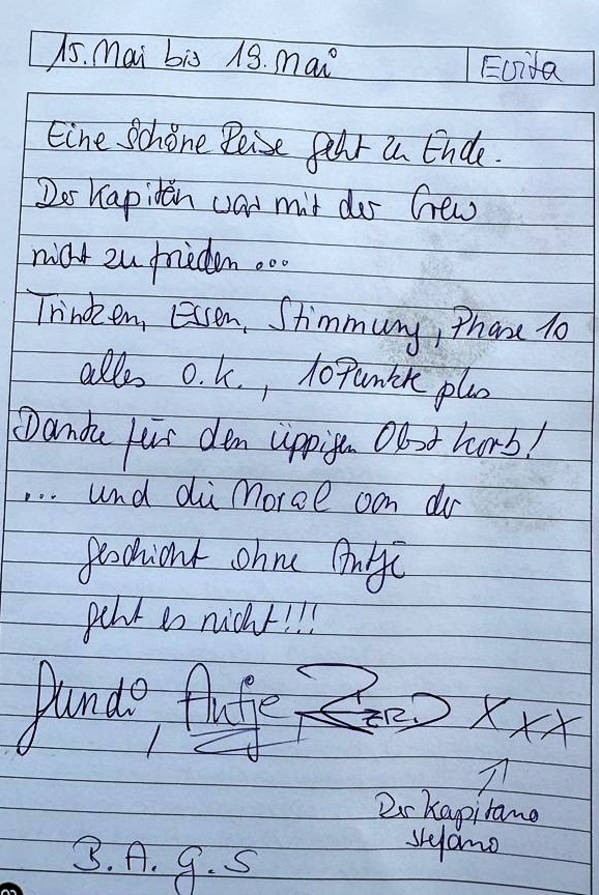 15. Mai bis 19. Mai
Evita
Eine schöne Reise geht zu Ende.
Der Kapitän war mit der Crew
nicht zu frieden ...
Trinken, Essen, Stimmung, Phase 10
alles o.k., 10 Punkte plus
Danke für den üppigen Obstkorb!
... und die Moral von der
geschicht ohne Antje
geht es nicht!!!
Antje, XXX
Der Kapitano
Stefano
B. A. G. S